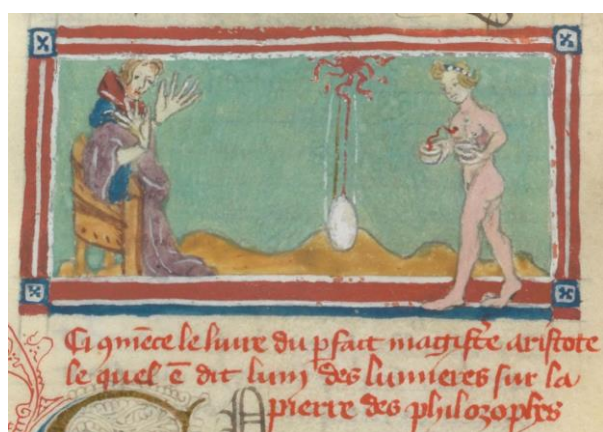 Ci 9mēce le liure du ꝑfait magistē aristote
le quel ē dit lumˀ des lumieres sur la
pierre des philozophes